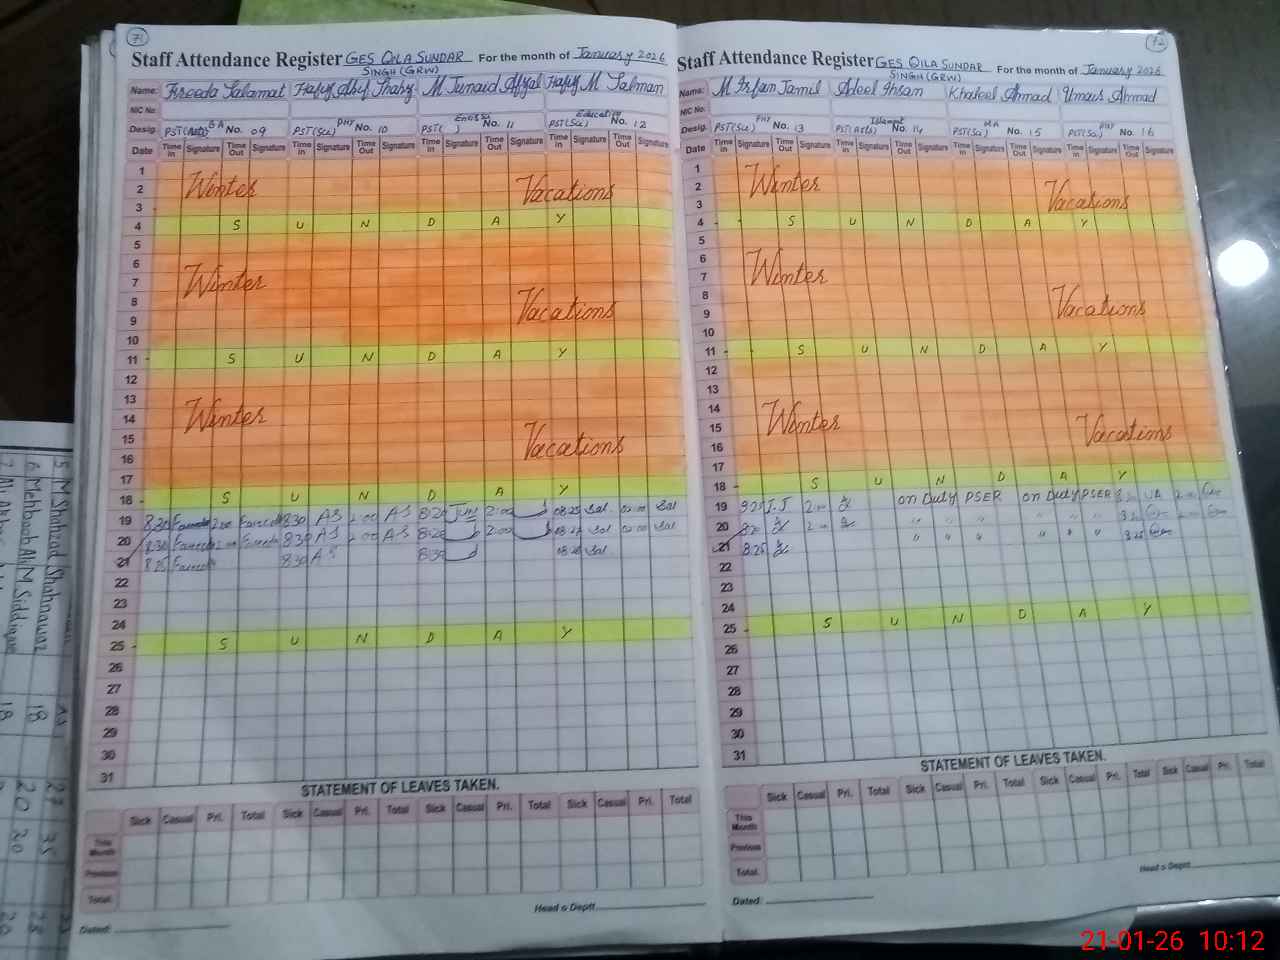 71
Staff Attendance Register GES QILA SUNDAR SINGH (GRW) For the month of January 2026
Name: Freeda Salamat Hafiz Atif Shahz M Junaid Afzal Hafiz M Salman
NIC No.
Desig. PST(Arts) BA No. 09 PST(Sci) PHY No. 10 PST( ) No. 11 PST(Sci) Education No. 12
Date Time In Signature Time Out Signature Time In Signature Time Out Signature Time In Signature Time Out Signature Time In Signature Time Out Signature
1
2 Winter Vacations
3
4 S U N D A Y
5
6
7 Winter
8 Vacations
9
10
11 S U N D A Y
12
13
14 Winter
15 Vacations
16
17
18 S U N D A Y
19 8:30 2:00 8:30 AS 2:00 AS 8:20 2:00 08:25 Sal 02:00 Sal
20 8:30 8:30 AS 2:00 AS 8:20 2:00 Sal 02:00 Sal
21 8:25 8:30 AS 8:30 Sal
22
23
24
25 S U N D A Y
26
27
28
29
30
31
STATEMENT OF LEAVES TAKEN.
Sick Casual Pri. Total Sick Casual Pri. Total Sick Casual Pri. Total Sick Casual Pri. Total
This Month
Previous
Total
Head s Deptt
Dated:
72
Staff Attendance Register GES QILA SUNDAR SINGH (GRW) For the month of January 2026
Name: M Irfan Jamil Adeel Ahsan Khaleel Ahmad Umais Ahmad
NIC No.
Desig. PST(Sci) PHY No. 13 PST(Arts) Islamat No. 14 PST(Sci) MA No. 15 PST(Sci) PHY No. 16
Date Time In Signature Time Out Signature Time In Signature Time Out Signature Time In Signature Time Out Signature Time In Signature Time Out Signature
1
2 Winter Vacations
3
4 S U N D A Y
5
6
7 Winter
8 Vacations
9
10
11 S U N D A Y
12
13
14 Winter
15 Vacations
16
17
18 S U N D A Y
19 2:00 on Duty PSER on Duty PSER
20 8:20 2:00 " " " " " "
21 8:25 " " " " " "
22
23
24
25 S U N D A Y
26
27
28
29
30
31
STATEMENT OF LEAVES TAKEN.
Sick Casual Pri. Total Sick Casual Pri. Total Sick Casual Pri. Total Sick Casual Pri. Total
This Month
Previous
Total
Head s Deptt
Dated:
5 M Shahzad Shahnawaz
6 Mehboob Ali M Siddique 18 20 20
21-01-26 10:12